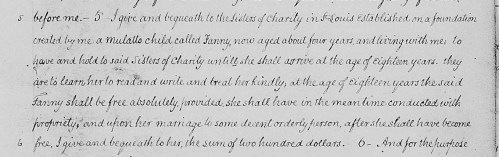 5 before me. – 5 – I give and bequeath to the Sisters of Charity in St Louis established on a foundation
created by me a mulatto child called Fanny, now aged about four years, and living with me; to
have and hold to said Sisters of Charity untill she shall arrive at the age of eighteen years. they
are to learn her to read and write and treat her kindly, at the age of eighteen years the said
Fanny shall be free absolutely, provided, she shall have in the mean time conducted with
propriety, and upon her marriage to some decent orderly person, after she shall have become
6 free, I give and bequeath to her, the sum of two hundred dollars. 6 – And for the purpose